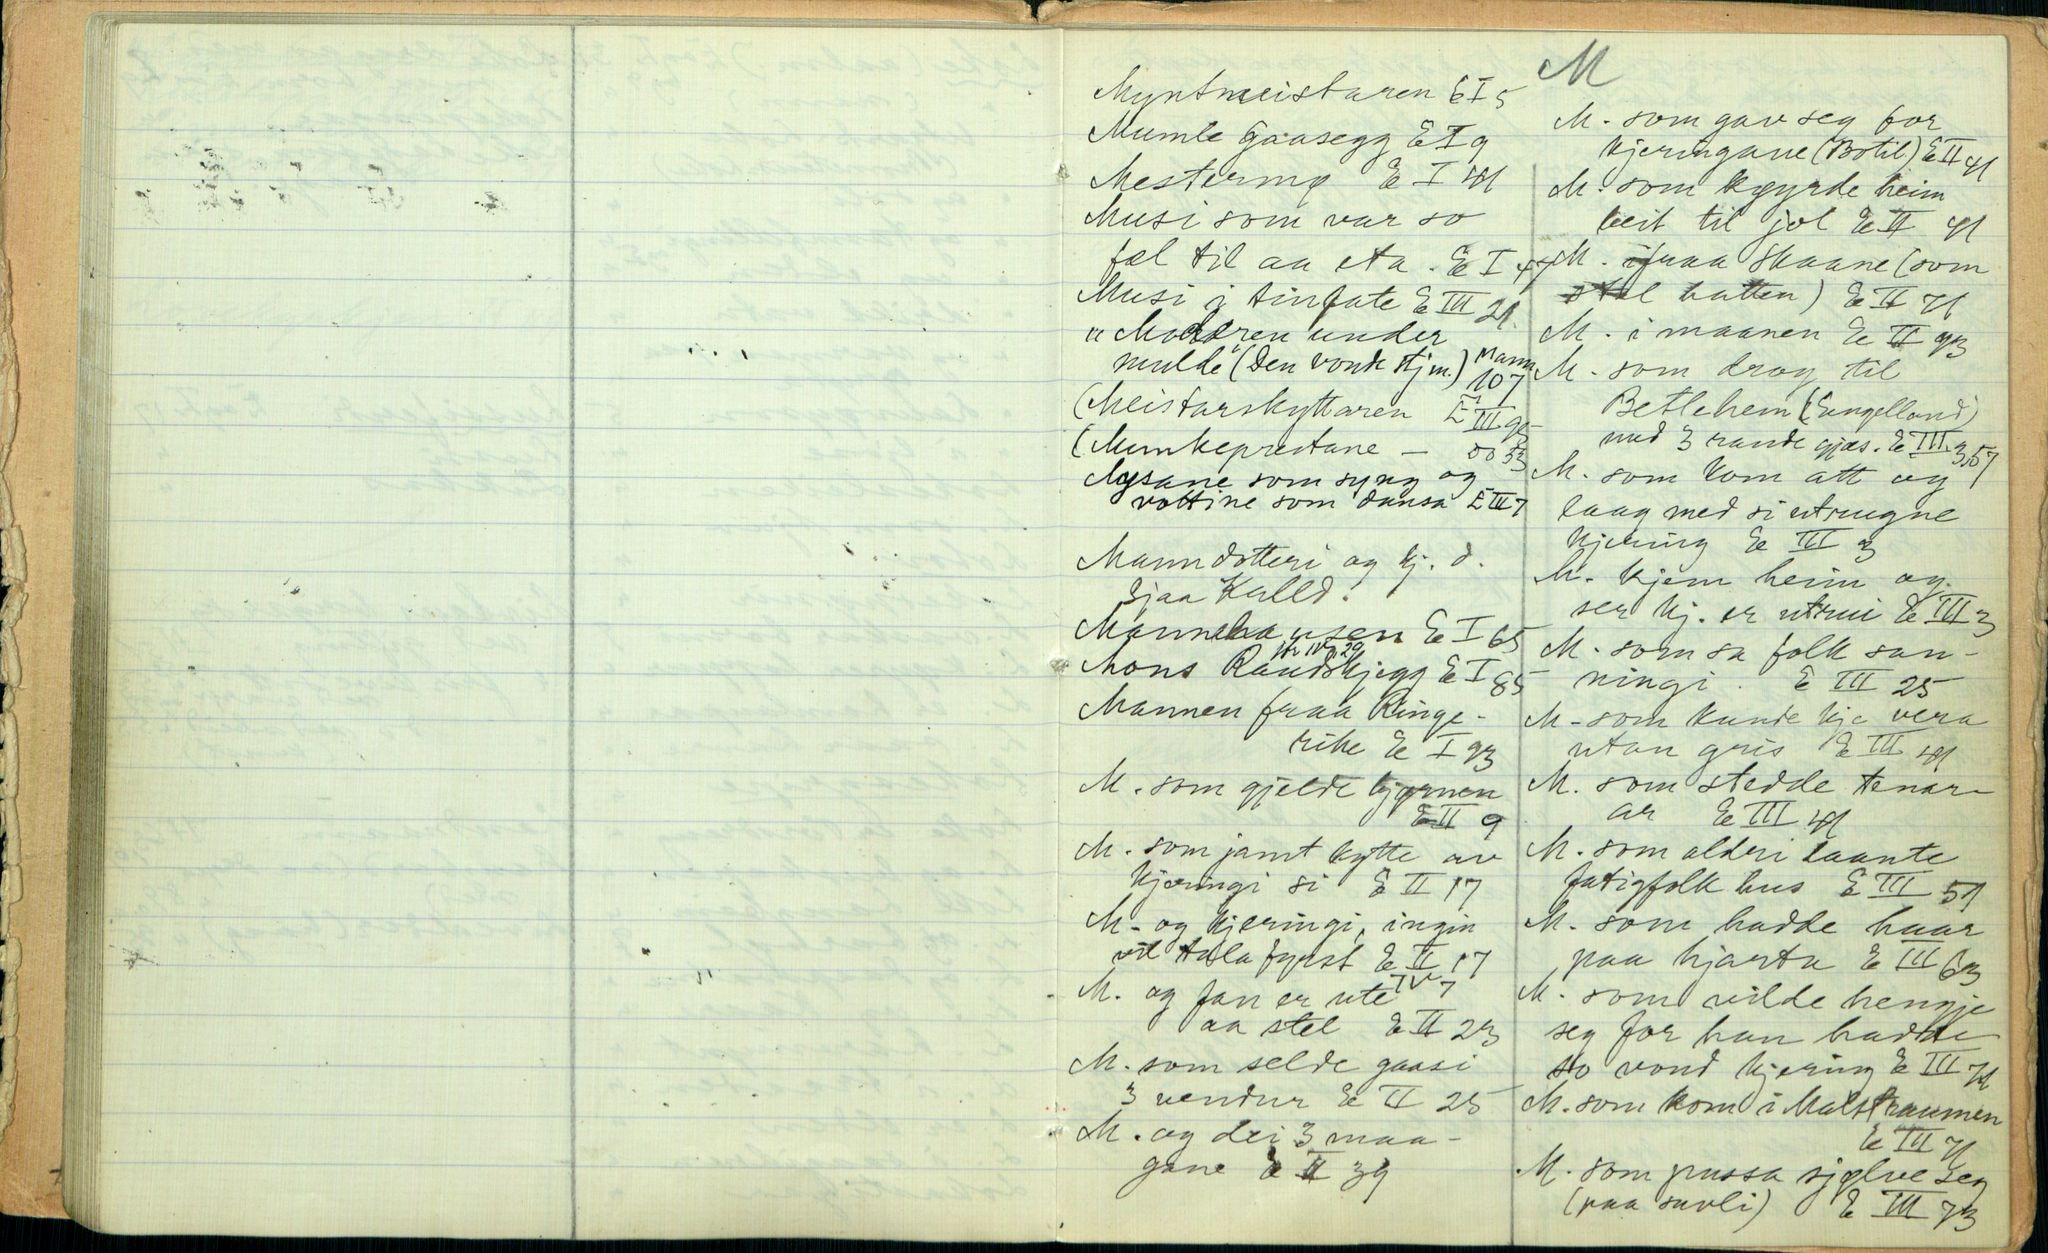 M
Myntmeistaren E I 5
Mumle Gaasegg E I 9
Mestermø E I 41
Musi som var so
fæl til aa eta. E I 47
Musi i tinfate E III 21.
"Moderen under
mulde" (Den vonde stjm.) Mann
107
(Meistarskyttaren E III 95
(Munkeprestane — do 33
Mysane som syng og
vottine som dansa E III 7
Manndotteri og kj. d.
sjaa Kulld.
Mannahausen E I 65
Mons Raudskjegg E I 85
Mannen fraa Ringe-
rike E I 93
M. som gjelde kjørnen
E II 9
M. som jamt kytte av
kjeringi si E II 17
M. og kjeringi, ingin
vil tala fyrst E II 17
IV 7
M. og fan er ute
aa stel E II 23
M. som selde gaasi
3 vendur E II 25
M. og dei 3 maa-
gane E II 39
M. som gav seg for
kjeringane (Botil) E II 41
M. som køyrde heim
beit til jol E II 41
M. ifraa Skaane (som
stal hatten) E II 71
M. i maanen E II 93
M. som drog til
Betlehem (Engelland)
med 3 rande gjæs. E III 3,57
M. som kom att og
laag med si utrugne
kjering E III 3
M. kjem heim og
ser kj. er utrui E III 3
M. som sa folk san-
ningi. E III 25
M. som kunde kje vera
utan gris E III 41
M. som stedde tenar-
ar E III 41
M. som aldri laante
fatigfolk hus E III 51
M. som hadde haar
paa hjarta E III 63
M. som vilde hengje
seg for han hadde
so vond kjering E III 71
M. som kom i Malstraumen
E III 71
M. som pussa sjølve seg
(paa savli) E III 73